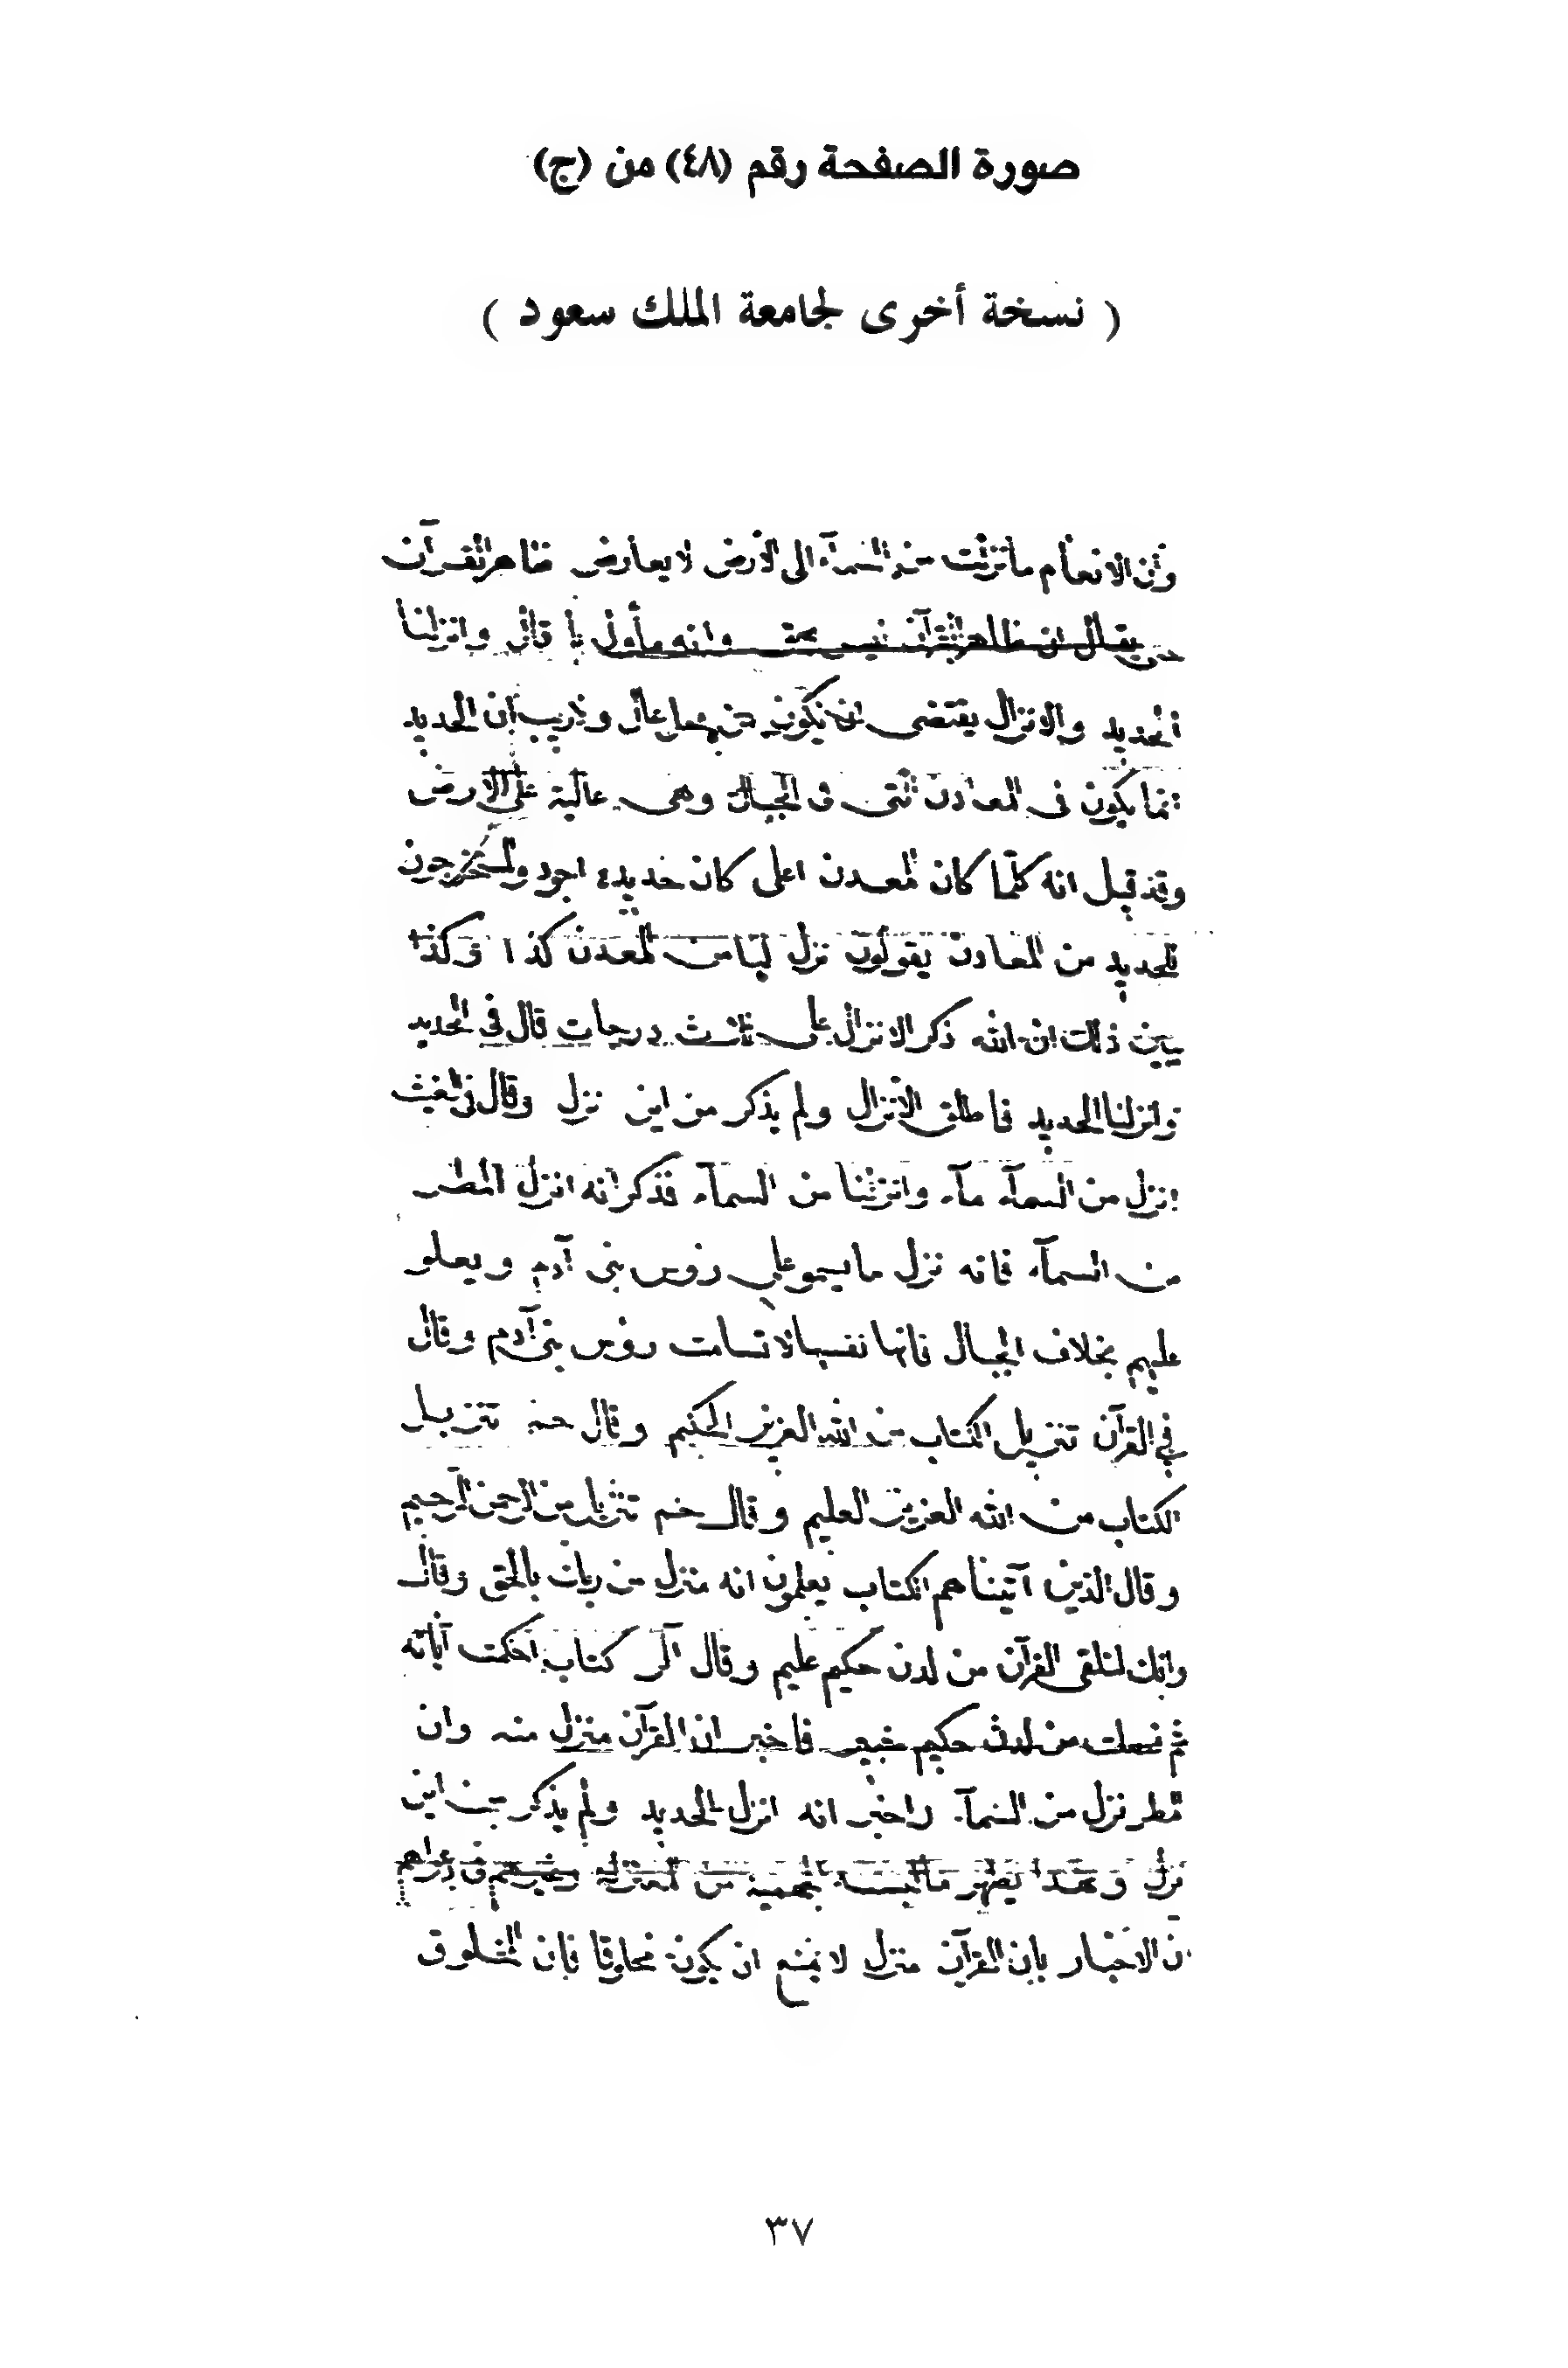 صورة الصفحة رقم (٤٨) من (ج)
( نسخة أخرى لجامعة الملك سعود )
الانعام ما نزلت من السمآء الى الارض لا يعارض ظاهر القرآن
حتى يقال ان ظاهر القرآن ليس بحق وانه مأول قال وانزلنا
الحديد والانزال يقتضى ان يكون من عال ولا ريب ان الحديد
انما يكون فى المعادن التى فى الجبال وهى عالية على الارض
وقد قيل انه كلما كان المعدن اعلى كان حديده اجود والمستخرجون
للحديد من المعادن يقولون نزل لنا من المعدن كذا وكذا
يبين ذلك ان الله ذكر الانزال على ثلاث درجات قال فى الحديد
وانزلنا الحديد فاطلق الانزال ولم يذكر من اين نزل وقال فى الغيث
انزل من السمآء مآء وانزلنا من السمآء فذكر انه انزل المطر
من السمآء فانه نزل مما يسمو على رؤس بنى آدم ويعلو
عليهم بخلاف الجبال فانها نفسها لا تسامت رؤس بنى آدم وقال
في القرآن تنزيل الكتاب من الله العزيز الحكيم وقال حم تنزيل
الكتاب من الله العزيز العليم وقال حم تنزيل من الرحمن الرحيم
وقال الذين آتيناهم الكتاب يعلمون انه منزل من ربك بالحق وقال
وانك لتلقى القرآن من لدن حكيم عليم وقال الر كتاب احكمت آياته
ثم فصلت من لدن حكيم خبير فاخبر ان القرآن منزل منه وان
المطر نزل من السمآء واخبر انه انزل الحديد ولم يذكر من اين
نزل وبهذا يظهر ما الجهمية من المعتزلة وغيرهم فى دعواهم
ان الاخبار بان القرآن منزل لا يمنع ان يكون مخلوقا فان المخلوق
٣٧